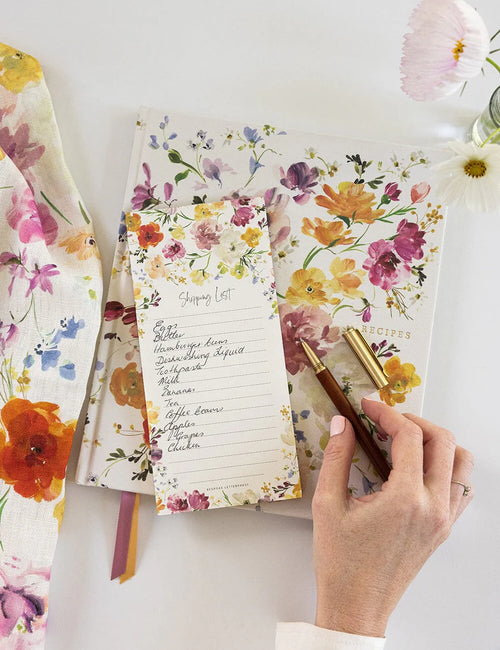 Shopping List
Eggs
Butter
Hamburger buns
Dishwashing Liquid
Toothpaste
Milk
Bananas
Tea
Coffee Beans
Apples
Grapes
Chicken
BESPOKE LETTERPRESS
RECIPES